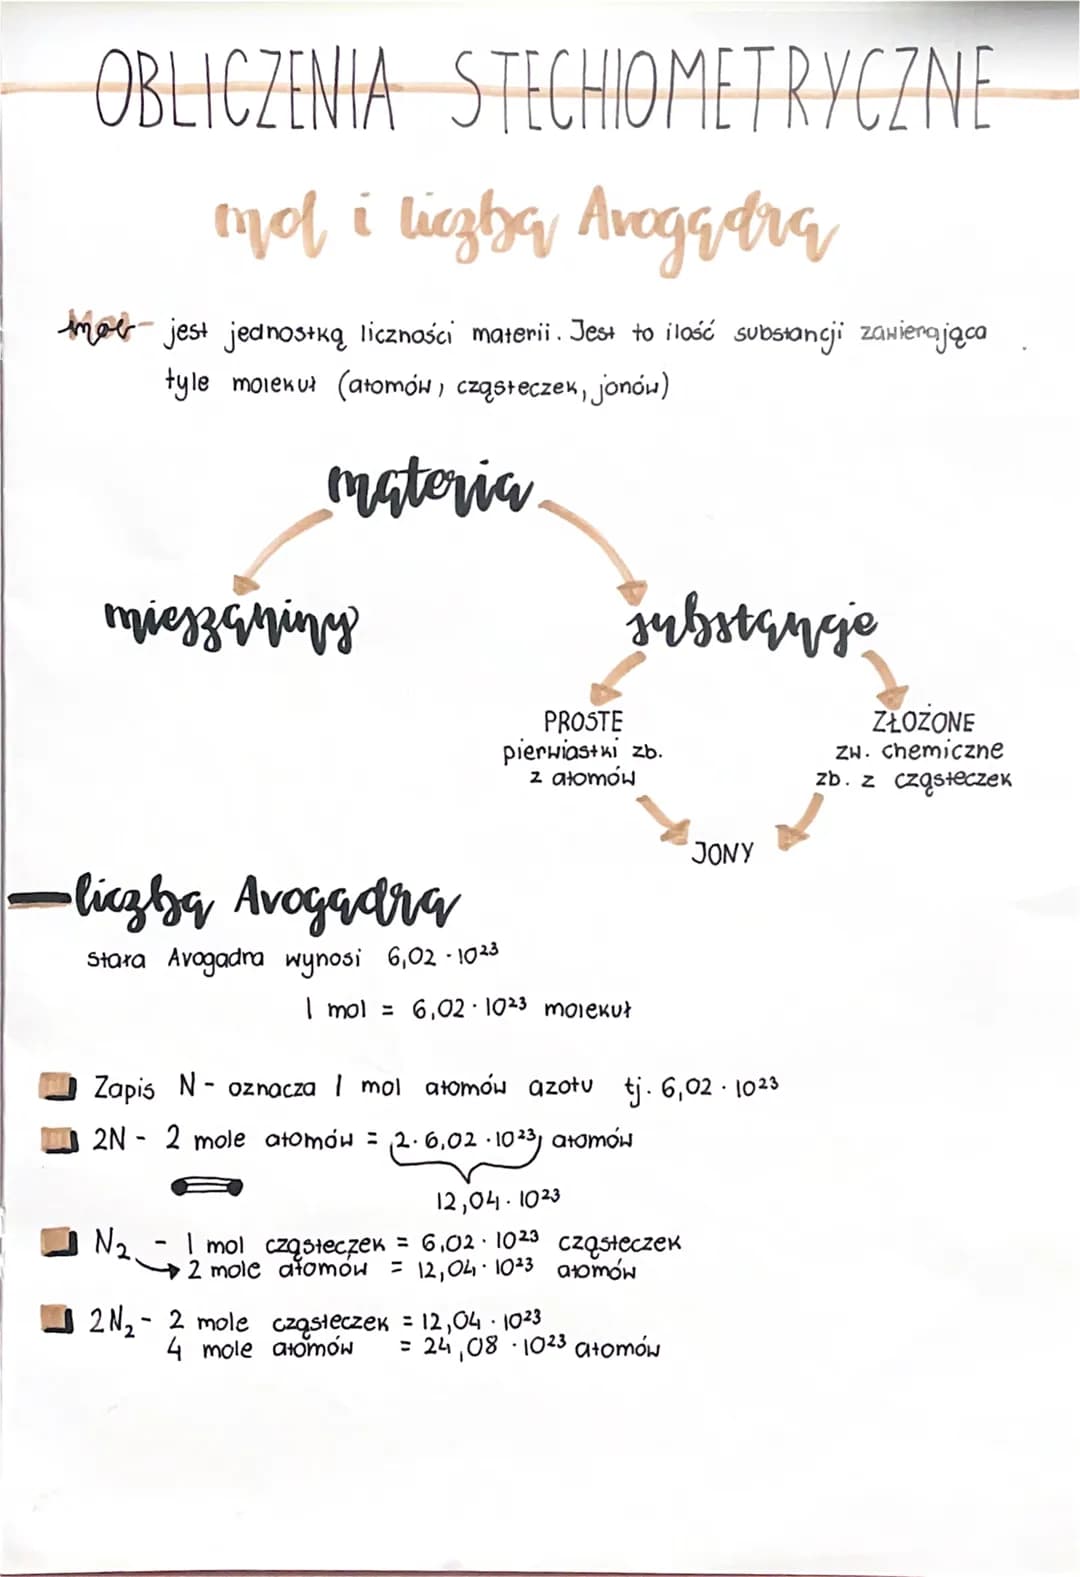 OBLICZENIA STECHIOMETRYCZNE
mol i liczba Avogadra
mol - jest jednostką liczności materii. Jest to ilość substancji zawierająca
tyle molekuł (atomów, cząsteczek, jonów)
materia
mieszaniny
substancje
PROSTE
pierwiastki zb.
z atomów
ZŁOŻONE
zw. chemiczne
zb. z cząsteczek
JONY
liczba Avogadra
stała Avogadra wynosi 6,02 · 10²³
1 mol = 6,02 · 10²³ molekuł
Zapis N - oznacza 1 mol atomów azotu tj. 6,02 · 10²³
2N - 2 mole atomów = 2 · 6,02 · 10²³ atomów
12,04 · 10²³
N₂ - 1 mol cząsteczek = 6,02 · 10²³ cząsteczek
2 mole atomów = 12,04 · 10²³ atomów
2N₂ - 2 mole cząsteczek = 12,04 · 10²³
4 mole atomów = 24,08 · 10²³ atomów